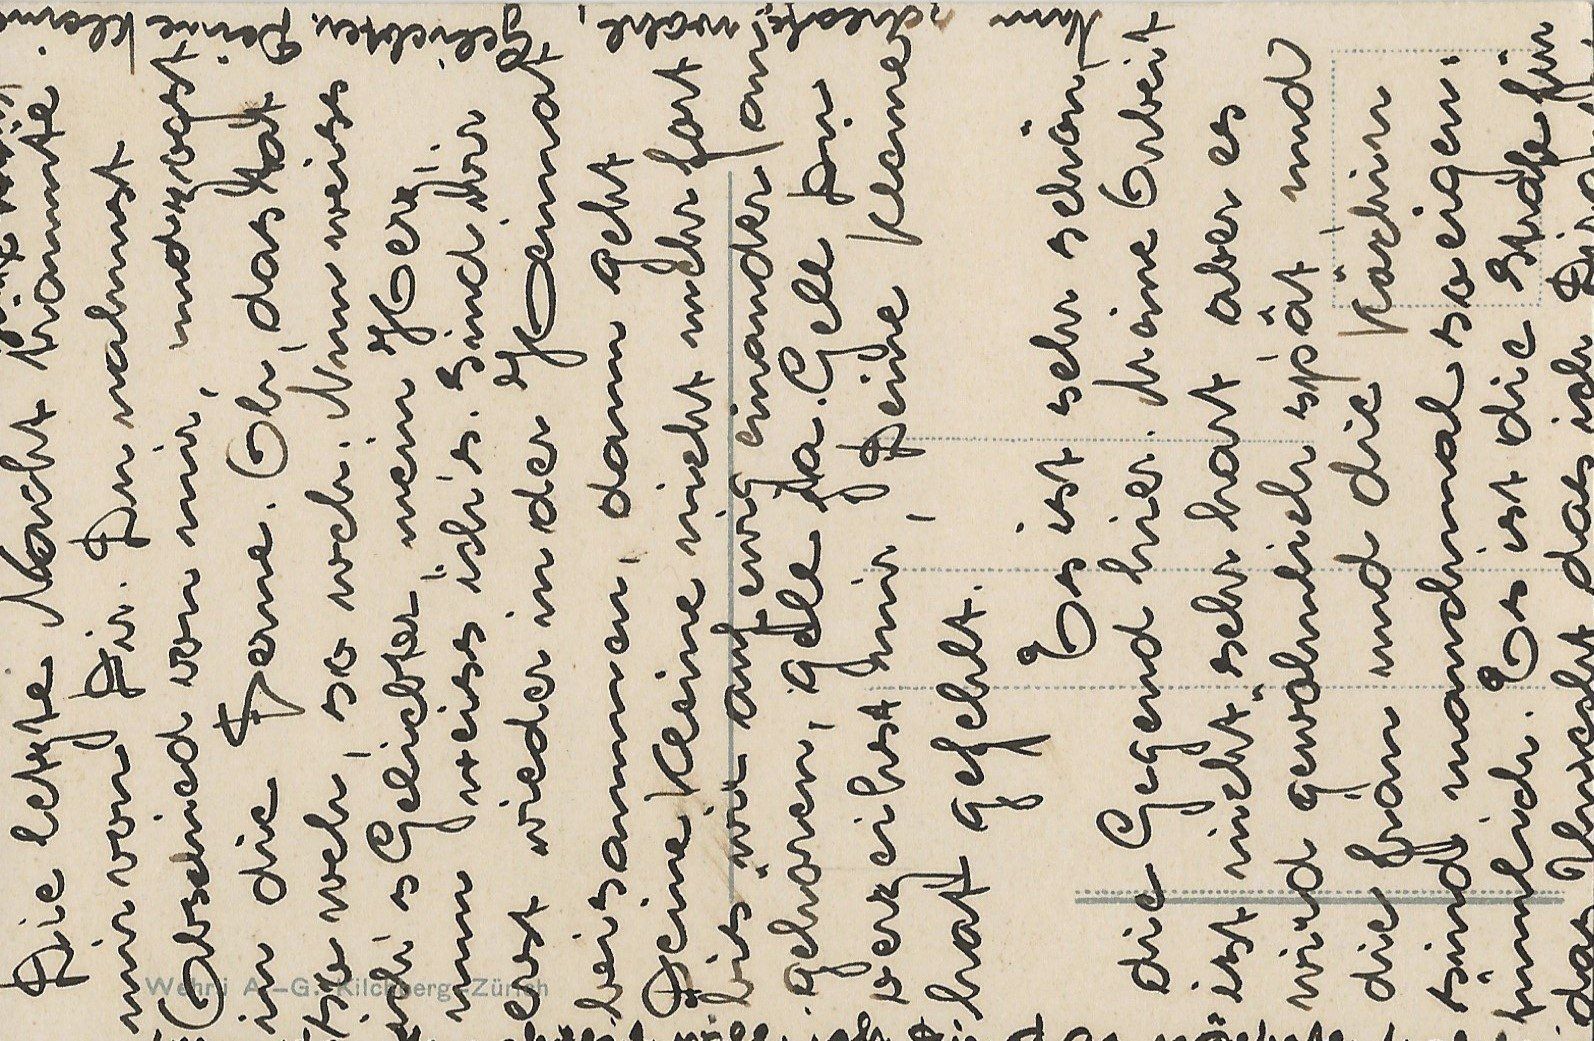 Die letzte Nacht träumte
mir von Dir. Du nahmst
Abschied von mir, und zogest
in die Ferne. Oh, das hat
so weh, so weh. Nun weiss
ich's Geliebter, mein Herz,
nun weiss ich's. Sind wir
erst wieder in der Heimat
beisammen, dann geht
Deine Kleine nicht mehr fort
bis wir auf ewig einander an
gehören, gelle ja. Gell Du
verzeihst mir, Deine Kleine
hat gefehlt.
Es ist sehr schön
die Gegend hier. Meine Arbeit
ist nicht sehr hart aber es
wird gewöhnlich spät und
die Frau und die Köchin
sind manchmal so eigen-
tümlich. Es ist die Strafe für
das Unrecht das ich Dir
Nun adieu, wohl,
Geliebter. Deine Kleine
Wehrli A.-G. Kilchberg-Zürich